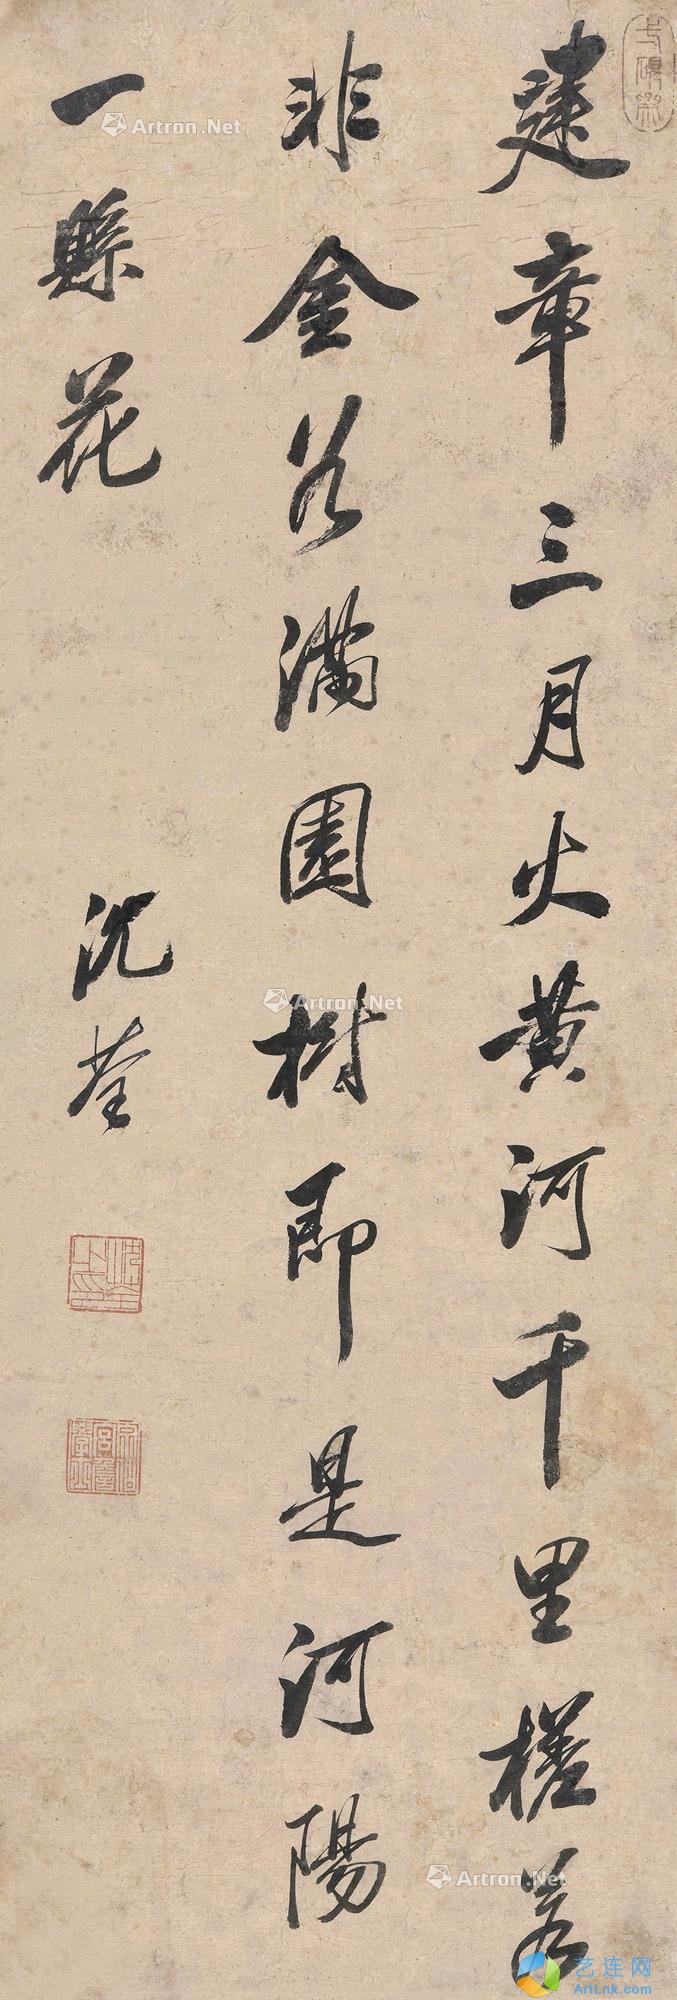 建章三月火黄河千里槎若
非金谷滿園樹即是河陽
一縣花
沈荃
沈荃之印
Artron.Net
Artron.Net
Artron.Net
艺连网
ArtLnk.com